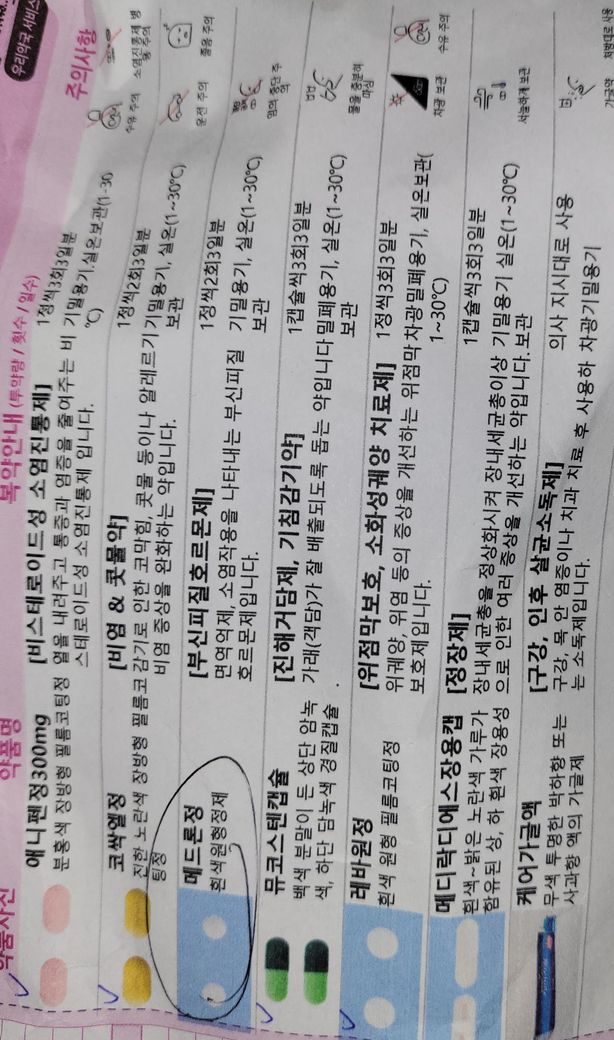 우리약국 서비스
약품사진 약품명 복약안내 (투약량 / 횟수 / 일수) 주의사항
애니펜정300mg
분홍색 장방형 필름코팅정
[비스테로이드성 소염진통제]
열을 내려주고 통증과 염증을 줄여주는 비
스테로이드성 소염진통제 입니다.
1정씩3회3일분
기밀용기,실온보관(1-30
℃)
수유 주의
소염진통제 병
용 주의
코싹엘정
진한 노란색 장방형 필름코
팅정
[비염 & 콧물약]
감기로 인한 코막힘, 콧물 등이나 알레르기
비염 증상을 완화하는 약입니다.
1정씩2회3일분
기밀용기, 실온(1~30℃)
보관
운전 주의
졸음 주의
메드론정
흰색원형정제
[부신피질호르몬제]
면역억제, 소염작용을 나타내는 부신피질
호르몬제입니다.
1정씩2회3일분
기밀용기, 실온(1~30℃)
보관
임의 중단 주
의
뮤코스텐캡슐
백색 분말이 든 상단 암녹
색, 하단 담녹색 경질캡슐
[진해거담제, 기침감기약]
가래(객담)가 잘 배출되도록 돕는 약입니다
.
1캡슐씩3회3일분
밀폐용기, 실온(1~30℃)
보관
물을 충분히
마심
레바원정
흰색 원형 필름코팅정
[위점막보호, 소화성궤양 치료제]
위궤양, 위염 등의 증상을 개선하는 위점막
보호제입니다.
1정씩3회3일분
차광밀폐용기, 실온보관(
1~30℃)
차광 보관
수유 주의
메디락디에스장용캡
흰색~밝은 노란색 가루가
함유된 상, 하 흰색 장용성
[정장제]
장내세균총을 정상화시켜 장내세균총이상
으로 인한 여러 증상을 개선하는 약입니다.
1캡슐씩3회3일분
기밀용기 실온(1~30℃)
보관
서늘하게 보관
케어가글액
무색 투명한 박하향 또는
사과향 액의 가글제
[구강, 인후 살균소독제]
구강, 목 안 염증이나 치과 치료 후 사용하
는 소독제입니다.
의사 지시대로 사용
차광기밀용기
가글약
처방대로 사용